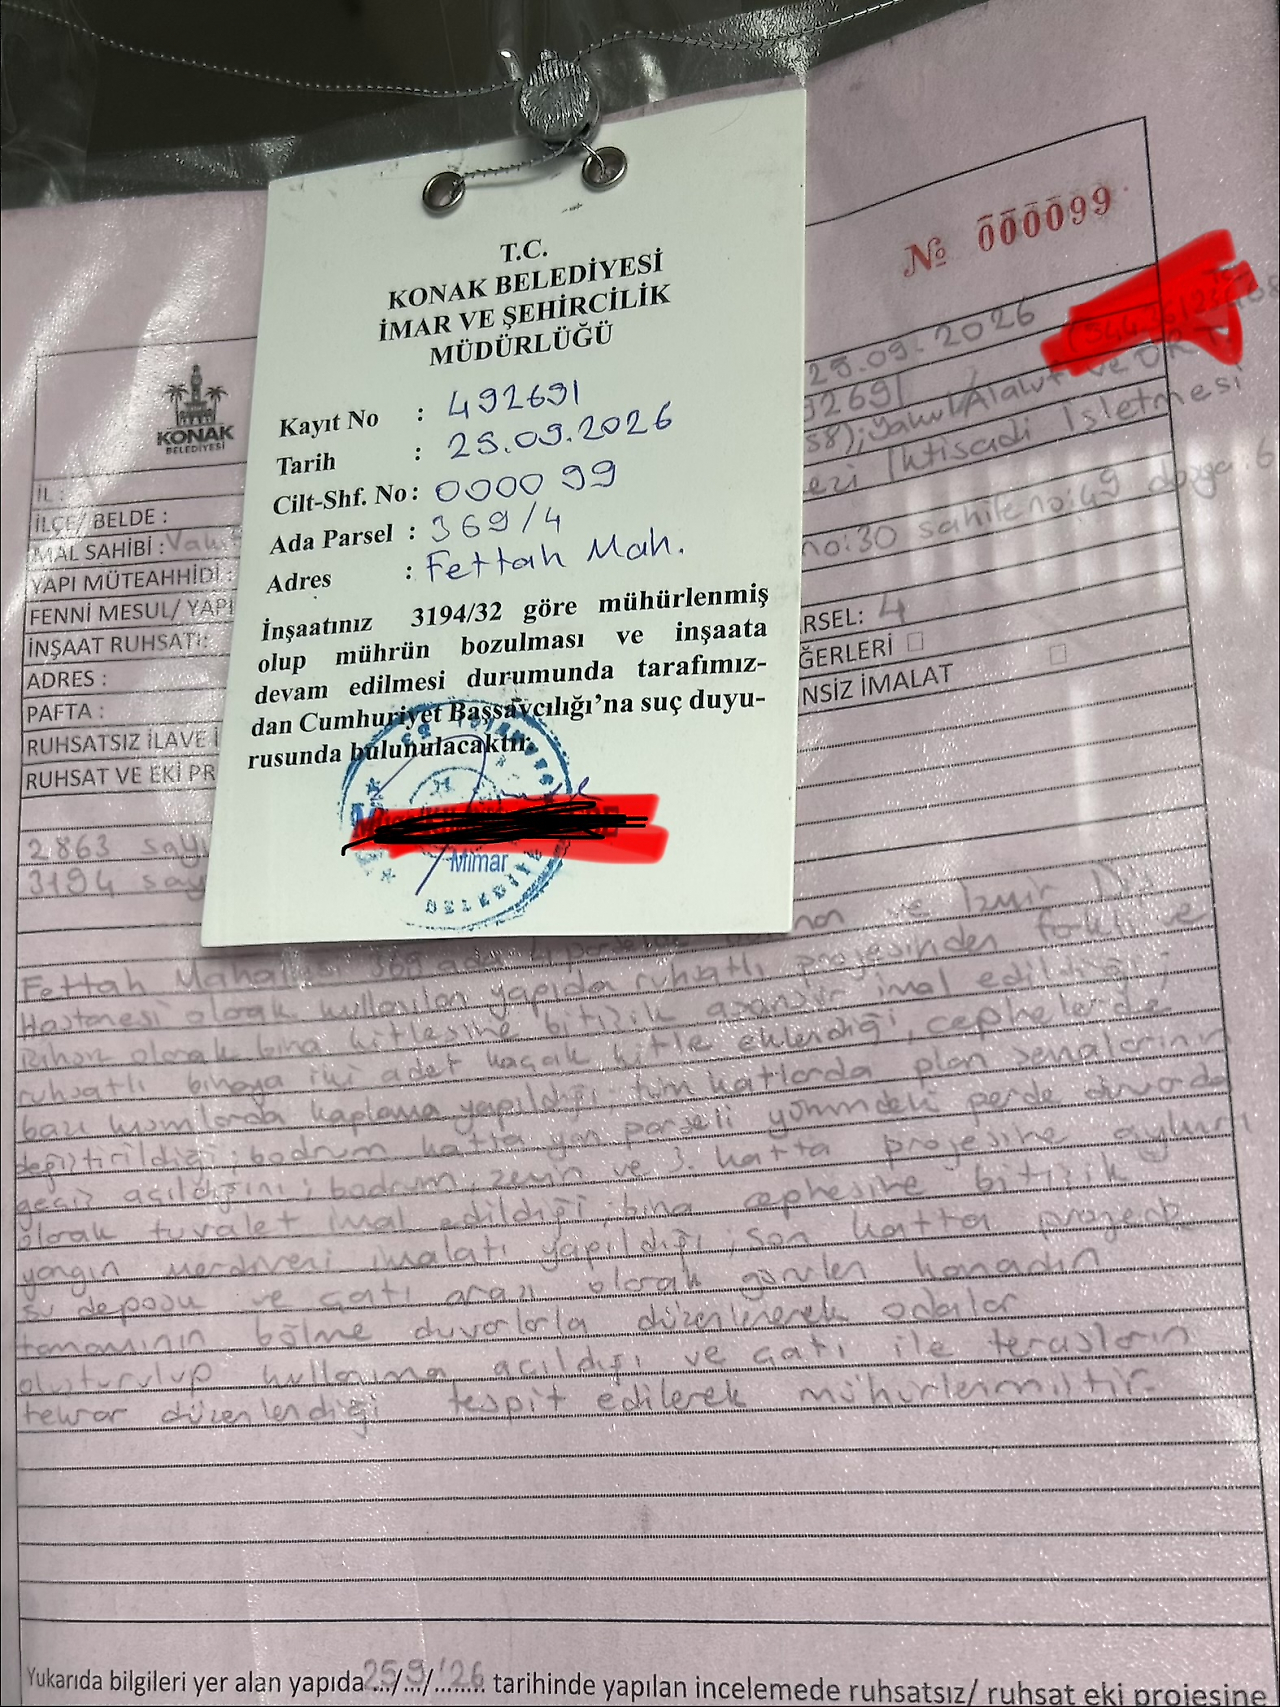 T.C.
KONAK BELEDİYESİ
İMAR VE ŞEHİRCİLİK
MÜDÜRLÜĞÜ
Kayıt No : 492691
Tarih : 25.09.2026
Cilt-Shf. No : 0000 99
Ada Parsel : 369/4
Adres : Fettah Mah.
İnşaatınız 3194/32 göre mühürlenmiş
olup mührün bozulması ve inşaata
devam edilmesi durumunda tarafımız-
dan Cumhuriyet Başsavcılığı'na suç duyu-
rusunda bulunulacaktır.
Mimar
№ 000099
KONAK
BELEDİYESİ
25.09.2026
İL :
İLÇE/ BELDE :
MAL SAHİBİ :
İktisadi İşletmesi
YAPI MÜTEAHHİDİ :
no:30 sahife no:49 dosya:6
FENNİ MESUL/ YAPI
İNŞAAT RUHSATI:
RSEL: 4
ADRES :
ĞERLERİ
PAFTA :
NSİZ İMALAT
RUHSATSIZ İLAVE İ
RUHSAT VE EKİ PR
2863 sayı
3194 sayı
ve İzmir
Fettah Mahallesi 369 ada 4 parselde
Hastanesi olarak kullanılan yapıda ruhsatlı projesinden farklı ve
olarak bina kitlesine bitişik asansör imal edildiği;
ruhsatlı binaya iki adet kaçak kitle eklendiği, cephelerde
bazı kısımlarda kaplama yapıldığı, tüm katlarda plan şemalarının
değiştirildiği; bodrum katta yan parseli yönündeki perde duvarda
geçiş açıldığını; bodrum, zemin ve 3. katta projesine aykırı
olarak tuvalet imal edildiği, bina cephesine bitişik
yangın merdiveni imalatı yapıldığı; son katta projede
su deposu ve çatı arası olarak görülen kanadın
tamamının bölme duvarlarla düzenlenerek odalar
oluşturulup kullanıma açıldığı ve çatı ile terasların
tekrar düzenlendiği tespit edilerek mühürlenmiştir.
Yukarıda bilgileri yer alan yapıda 25/9/'26 tarihinde yapılan incelemede ruhsatsız/ ruhsat eki projesine